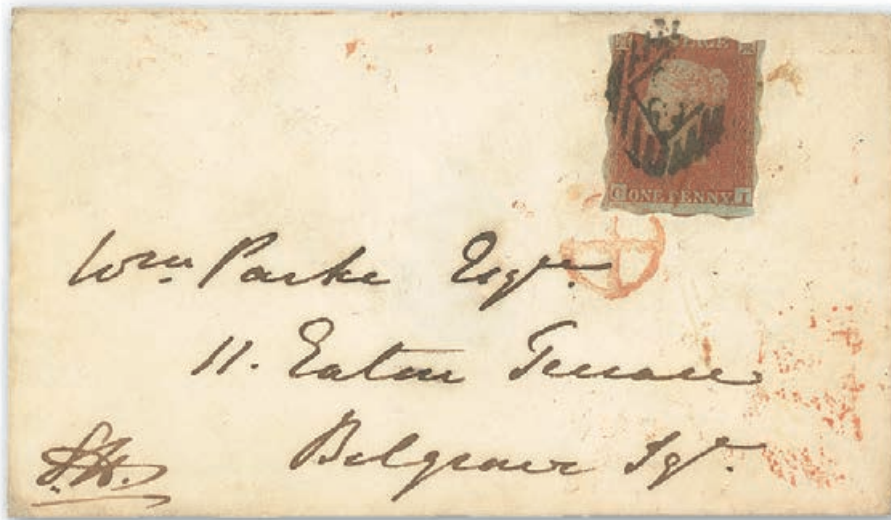 POSTAGE
ONE PENNY
Wm Parke Esqre.
11. Eaton Terrace
Belgrave Sqr.